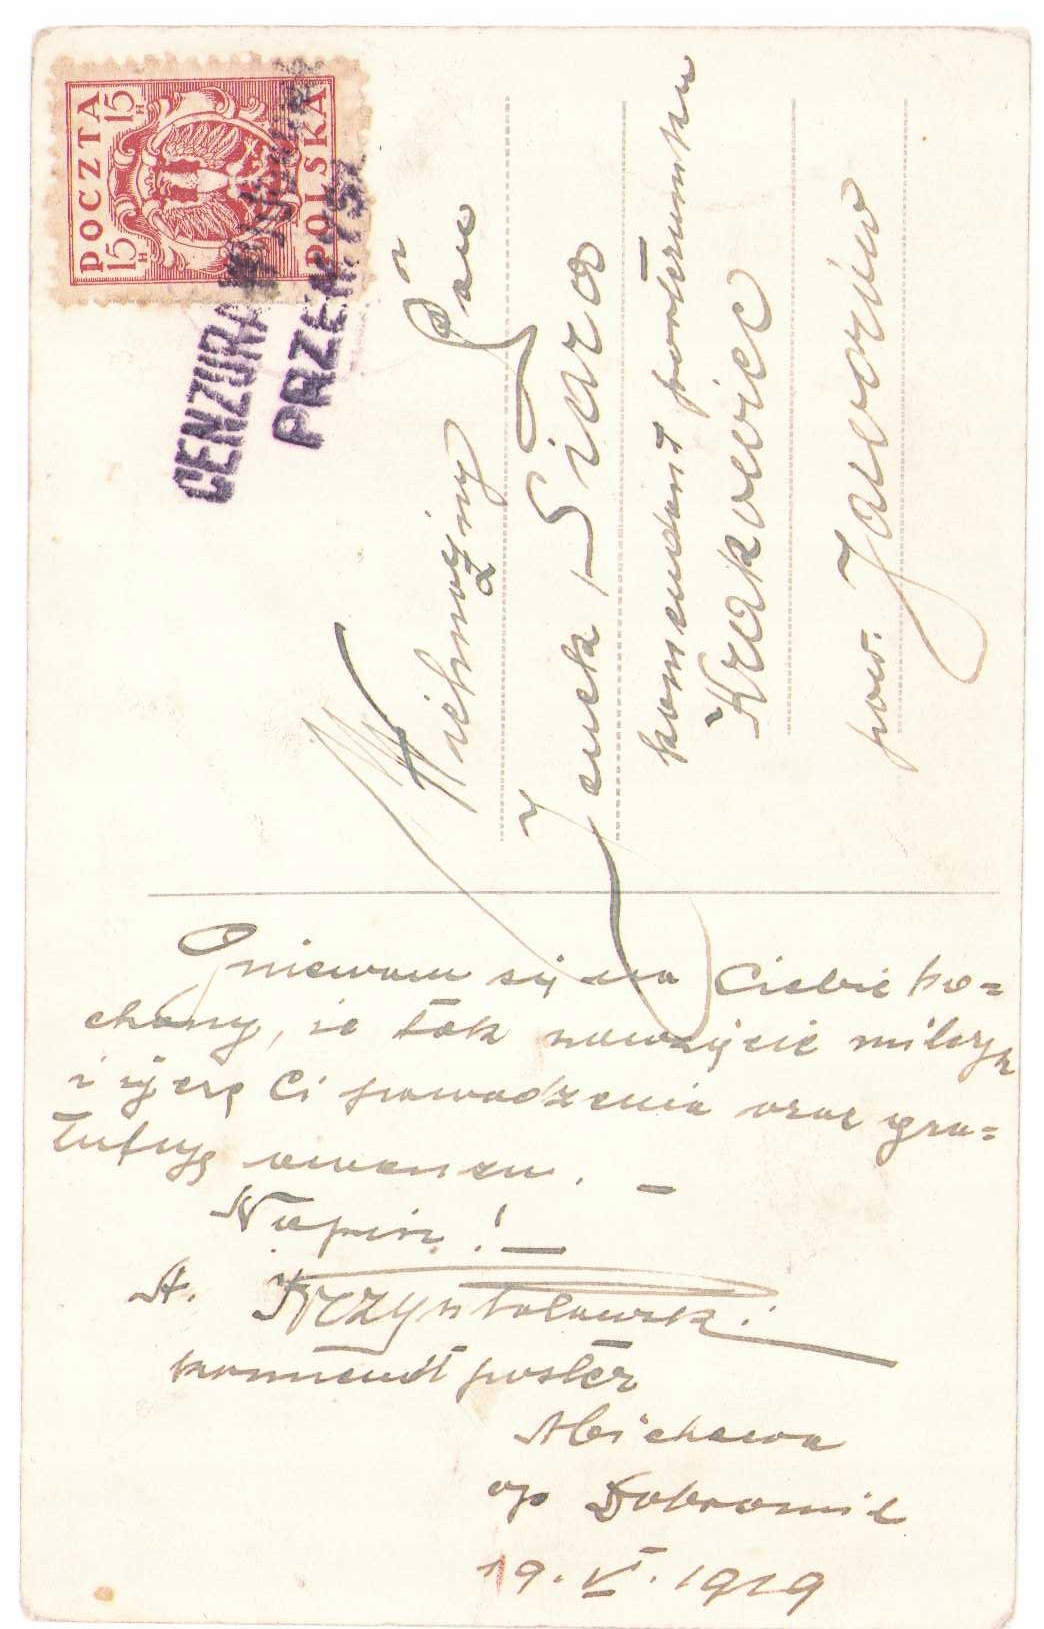 POCZTA
15 H 15 H
POLSKA
CENZURA
PRZEM
Wielmożny Pan
Janek Siara
komendant posterunku
Krakowiec
pow. Jaworów
Gniewam się na Ciebie ko=
chany, że tak milczysz
i życzę Ci powodzenia oraz gra=
tuluję awansu. —
Napisz! —
A. Krzysztolowski
komendt poster
Michowa
op Dobromil
19. VI. 1919